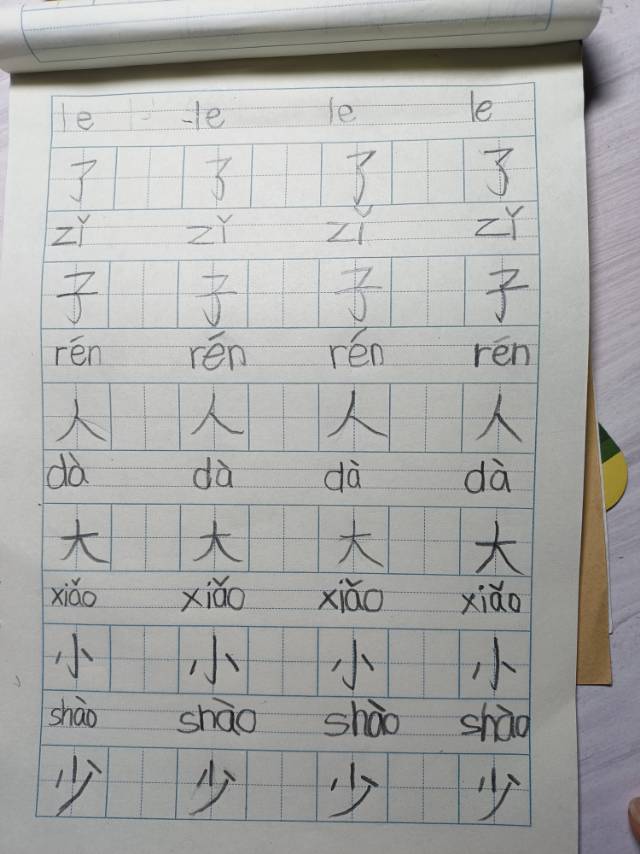 le le le le
了 了 了 了
zǐ zǐ zǐ zǐ
子 子 子 子
rén rén rén rén
人 人 人 人
dà dà dà dà
大 大 大 大
xiǎo xiǎo xiǎo xiǎo
小 小 小 小
shào shào shào shào
少 少 少 少